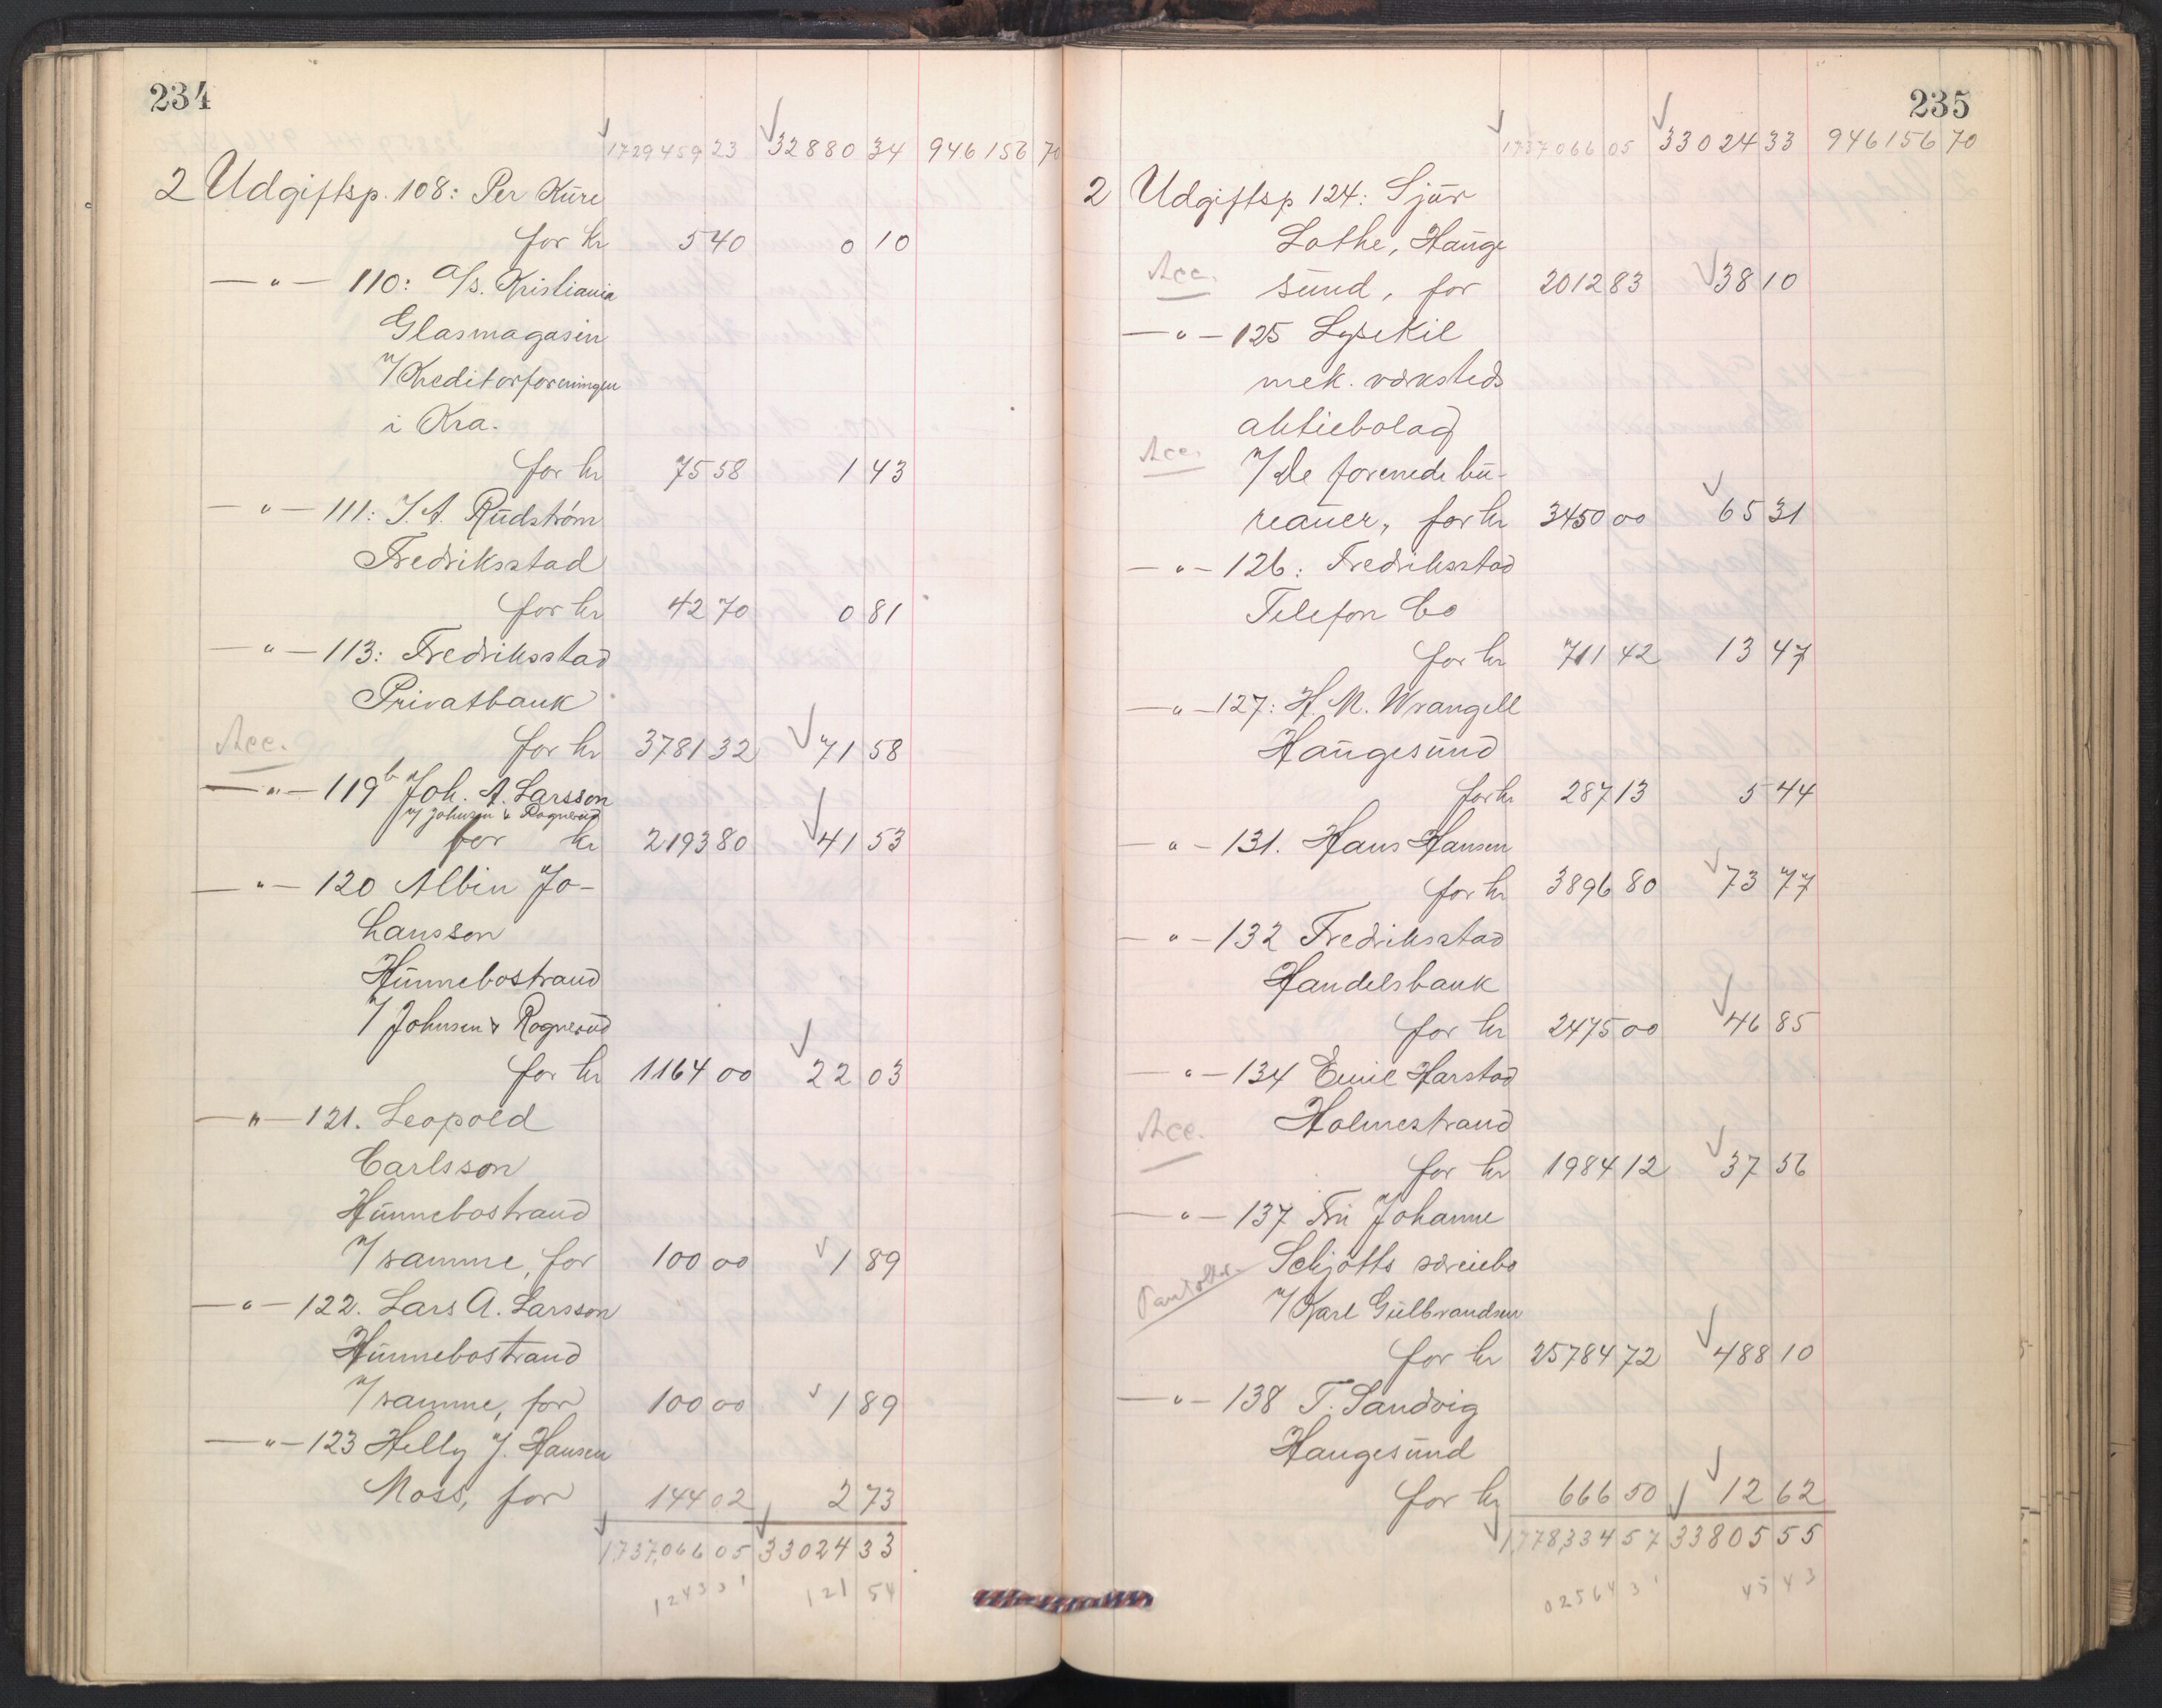 234
1729459 23 32880 34 946156 70
2 Udgiftsp. 108: Per Kure
for kr 5 40 0 10
— " — 110: A/s. Kristiania
Glasmagasin
v/ Kreditorforeningen
i Kra.
for kr 75 58 1 43
— " — 111: J. A. Rudström
Fredriksstad
for kr 42 70 0 81
— " — 113: Fredriksstad
Privatbank
Acc. for kr 3781 32 71 58
— " — 119b Joh. A. Larsson
v/ Johnsen & Rognerud
for kr 2193 80 41 53
— " — 120 Albin Jo-
hansson
Hunnebostrand
v/ Johnsen & Rognerud
for kr 1164 00 22 03
— " — 121. Leopold
Carlsson
Hunnebostrand
v/ samme, for 100 00 1 89
— " — 122. Lars A. Larsson
Hunnebostrand
v/ samme, for 100 00 1 89
— " — 123 Helly J. Hansen
Moss, for 144 02 2 73
1,737,066 05 33024 33
124331 121 54
235
1737066 05 33024 33 946156 70
2 Udgiftsp 124: Sjur
Lothe, Hauge
Acc. sund, for 2012 83 38 10
— " — 125 Lysekil
mek. værksteds
aktiebolag
Acc. v/ De forenede bu-
reauer, for kr 3450 00 65 31
— " — 126: Fredriksstad
Telefon Co
for kr 711 42 13 47
— " — 127: H. M. Wrangell
Haugesund
for kr 287 13 5 44
— " — 131. Hans Hansen
for kr 3896 80 73 77
— " — 132 Fredriksstad
Handelsbank
for kr 2475 00 46 85
— " — 134 Emil Harstad
Acc. Holmestrand
for kr 1984 12 37 56
— " — 137 Fru Johanne
Schjøtts særeiebo
Pantobl. v/ Karl Gulbrandsen
for kr 25784 72 488 10
— " — 138 T. Sandvig
Haugesund
for kr 666 50 12 62
1,778,334 57 33805 55
0256431 45 43